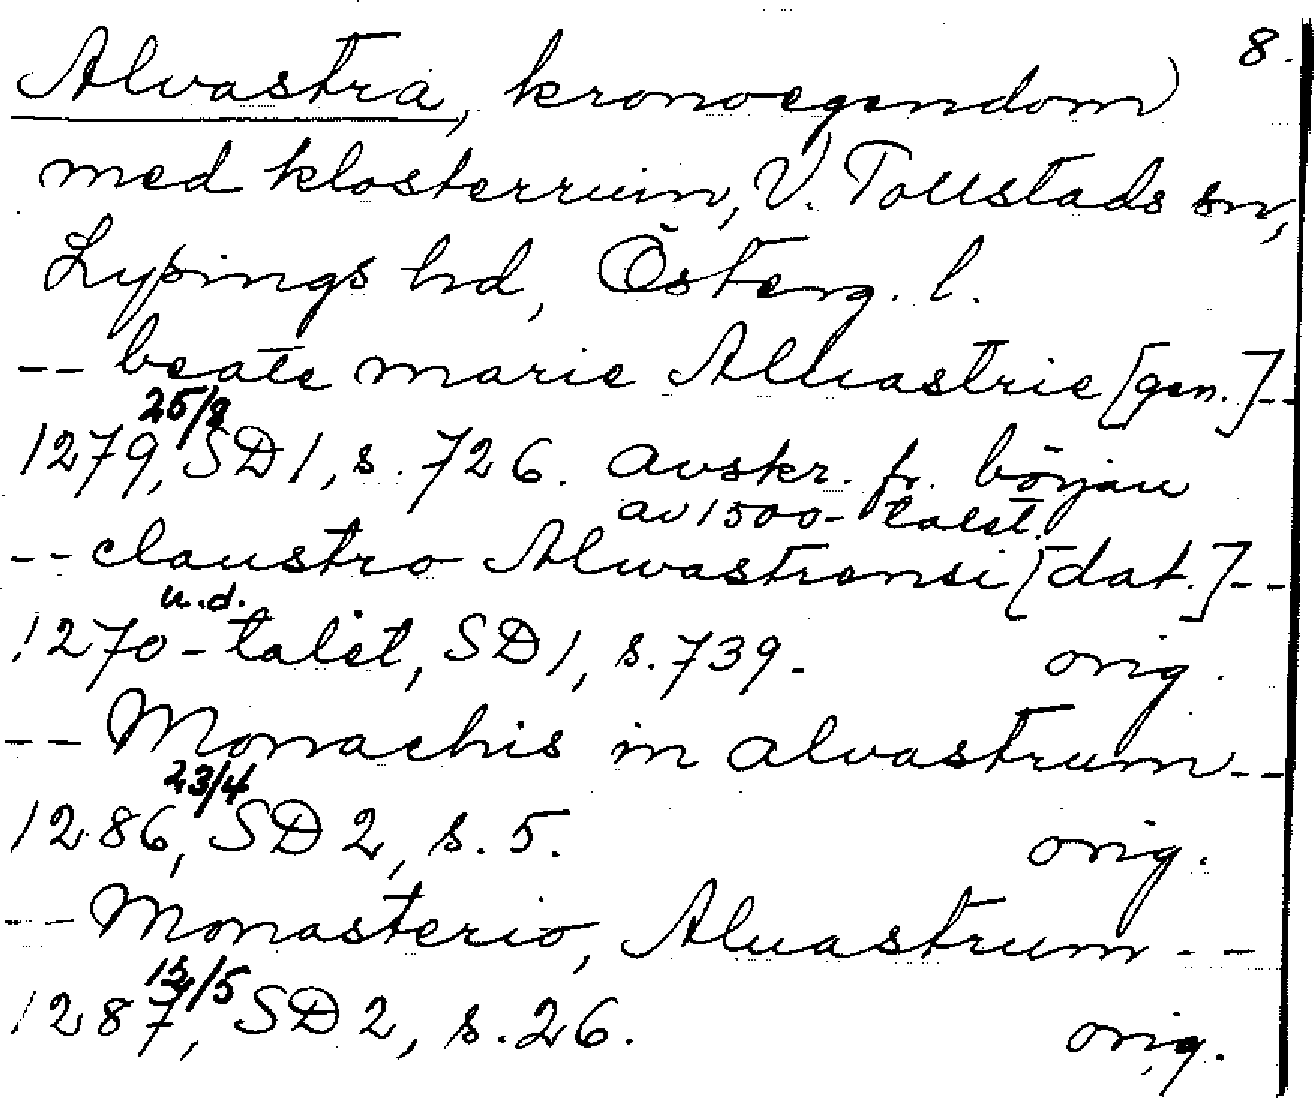 8.
Alvastra, kronoegendom
med klosterruin, V. Tollstads sn,
Lysings hd, Österg. l.
-- beate marie Aluastrie [gen.] --
25/8
1279, SD 1, s. 726. avskr. fr. början
av 1500-talet.
-- claustro Alwastrensi [dat.] --
u.d.
1270-talet, SD 1, s. 739. orig.
-- Monachis in alvastrum --
23/4
1286, SD 2, s. 5. orig.
-- Monasterio, Aluastrum --
/5
1287, SD 2, s. 26. orig.